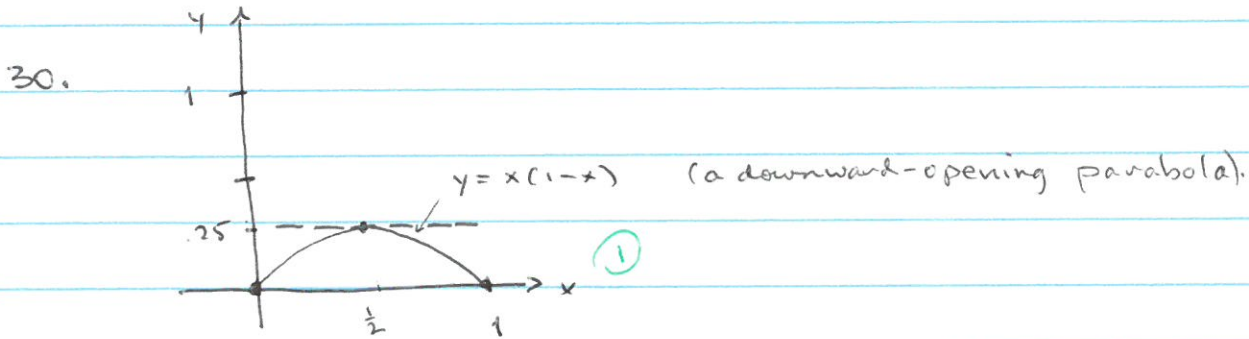 y
30.
1
y = x(1-x) (a downward-opening parabola).
.25
1
x
1/2 1